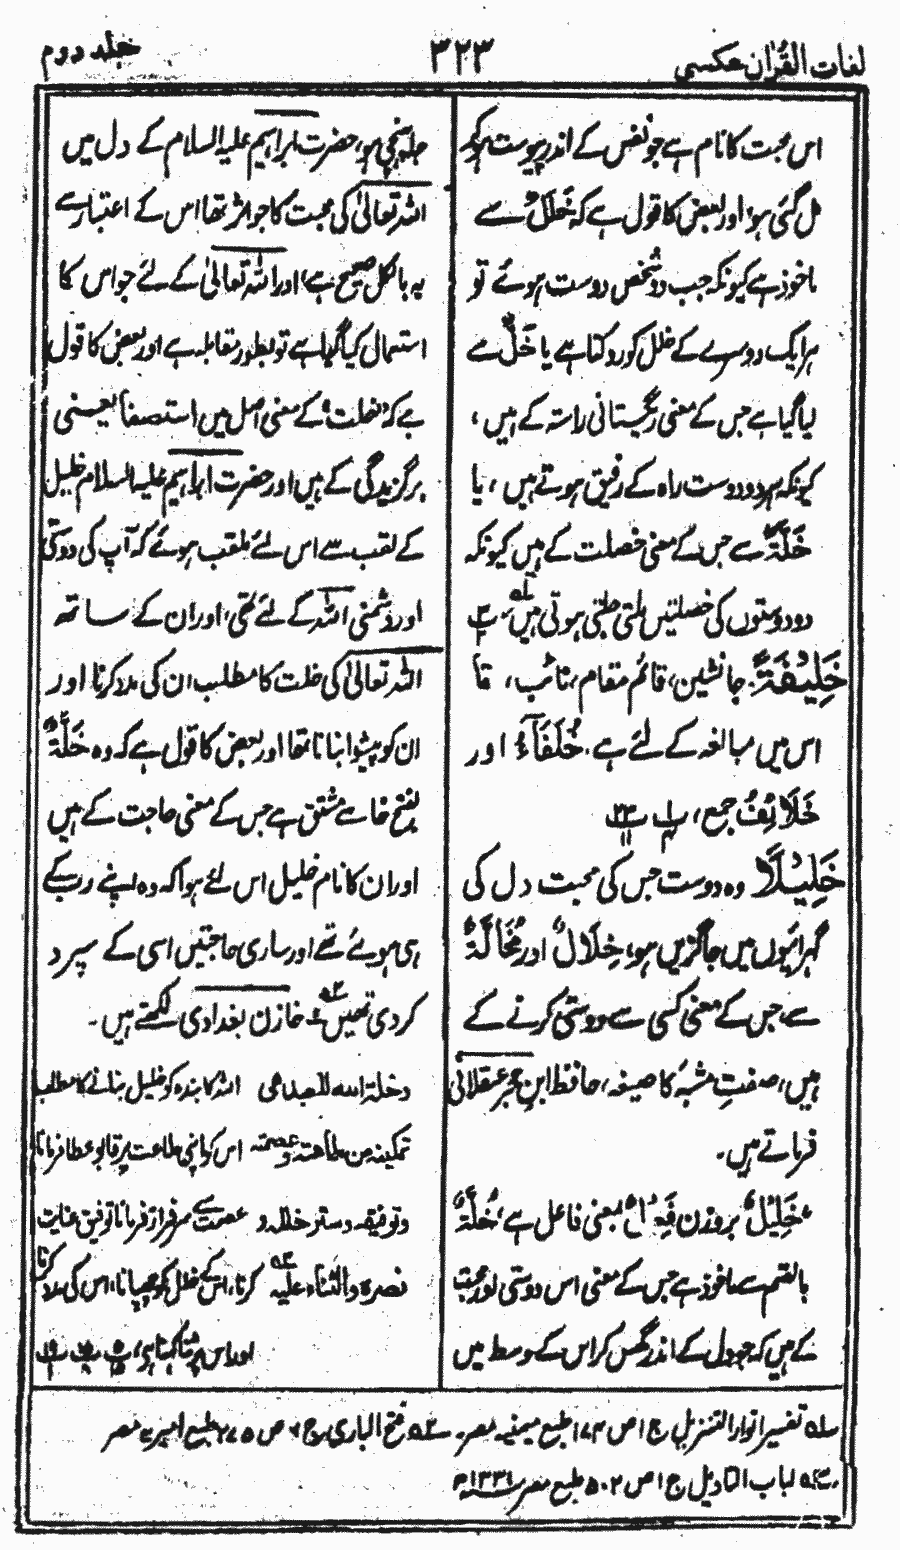 لغات القُرآن عکسی
۳۲۳
جلد دوم
اس محبت کا نام ہے جو نفس کے اندر پیوست ہوکر
مل گئی ہو، اور بعض کا قول ہے کہ خَلَلٌ سے
ماخوذ ہے کیونکہ جب دو شخص دوست ہوئے تو
ہر ایک دوسرے کے خلل کو روکتا ہے یا خَلٌّ سے
لیا گیا ہے جس کے معنی ریگستانی راستہ کے ہیں،
کیونکہ ہر دو دوست راہ کے رفیق ہوتے ہیں، یا
خَلَّةٌ سے جس کے معنی خصلت کے ہیں کیونکہ
دو دوستوں کی خصلتیں ملتی جلتی ہوتی ہیں
خَلِیْفَةً۔ جانشین، قائم مقام، نائب، قا
اس میں مبالغہ کے لئے ہے۔ خُلَفَآءُ اور
خَلَائِفُ جمع،
خَلِیْلًا وہ دوست جس کی محبت دل کی
گہرائیوں میں جاگزیں ہو، خِلَالٌ اور مُخَالَّةٌ
سے، جس کے معنی کسی سے دوستی کرنے کے
ہیں، صفتِ مشبہ کا صیغہ، حافظ ابن حجر عسقلانی
فرماتے ہیں۔
خَلِیْلٌ بروزن فَعِیْلٌ بمعنی فاعل ہے، خُلَّةٌ
بالضم سے ماخوذ ہے جس کے معنی اس دوستی اور محبت
کے ہیں کہ جو دل کے اندر گھس کر اس کے وسط میں
جا پہنچی ہو، حضرت ابراہیم علیہ السلام کے دل میں
اللہ تعالیٰ کی محبت کا جو اثر تھا اس کے اعتبار سے
یہ بالکل صحیح ہے، اور اللہ تعالیٰ کے لئے جو اس کا
استعمال کیا گیا ہے تو بطور مقابلہ ہے اور بعض کا قول
ہے کہ خلت کے معنی اصل میں استصفا یعنی
برگزیدگی کے ہیں اور حضرت ابراہیم علیہ السلام خلیل
کے لقب سے اس لئے ملقب ہوئے کہ آپ کی دوستی
اور دشمنی اللہ کے لئے تھی، اور ان کے ساتھ
اللہ تعالیٰ کی خلت کا مطلب ان کی مدد کرنا اور
ان کو پیشوا بنانا تھا اور بعض کا قول ہے کہ وہ خَلَّةٌ
بفتح خا سے مشتق ہے جس کے معنی حاجت کے ہیں
اور ان کا نام خلیل اس لئے ہوا کہ وہ اپنے رب کے
ہی ہوئے تھے اور ساری حاجتیں اسی کے سپرد
کردی تھیں، خازن بغدادی لکھتے ہیں۔
وخلة الله للعبد هی اللہ کا بندہ کو خلیل بنانے کا مطلب
تمکینه من طاعته وعصمته اس کو اپنی طاعت پر قابو عطا فرمانا
وتوفیقه وستر خلله و عصمت سے سرفراز فرمانا توفیق عنایت
نصرة والثناء علیه کرنا، اس کے خلل کو چھپانا، اس کی مدد کرنا
اور اس پر ثنا کہنا ہے،
لہ تفسیر انوار التنزیل ج ۱ ص ۱۷۴ طبع میمنیہ مصر۔ ۲ہ فتح الباری ج ۶ ص ۲۷۵ طبع امیریہ مصر
۳ہ لباب التاویل ج ۱ ص ۵۰۲ طبع مصر سنہ ۱۳۳۱ھ